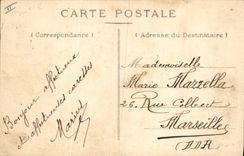 II
CARTE POSTALE
Correspondance
Adresse du Destinataire
Bonjour affectueux
et affectueuses caresses
Marius
Mademoiselle
Marie Marzella
26 Rue Clbert
Marseille